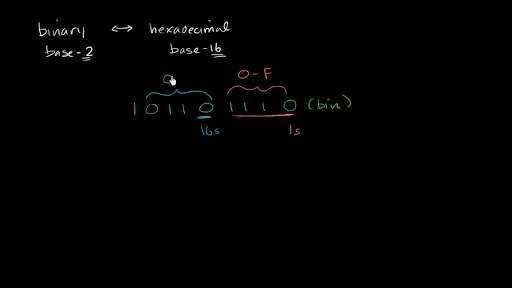 binary ↔ hexadecimal
base-2 base-16
0 0-F
101101110 (bin)
16s 1s